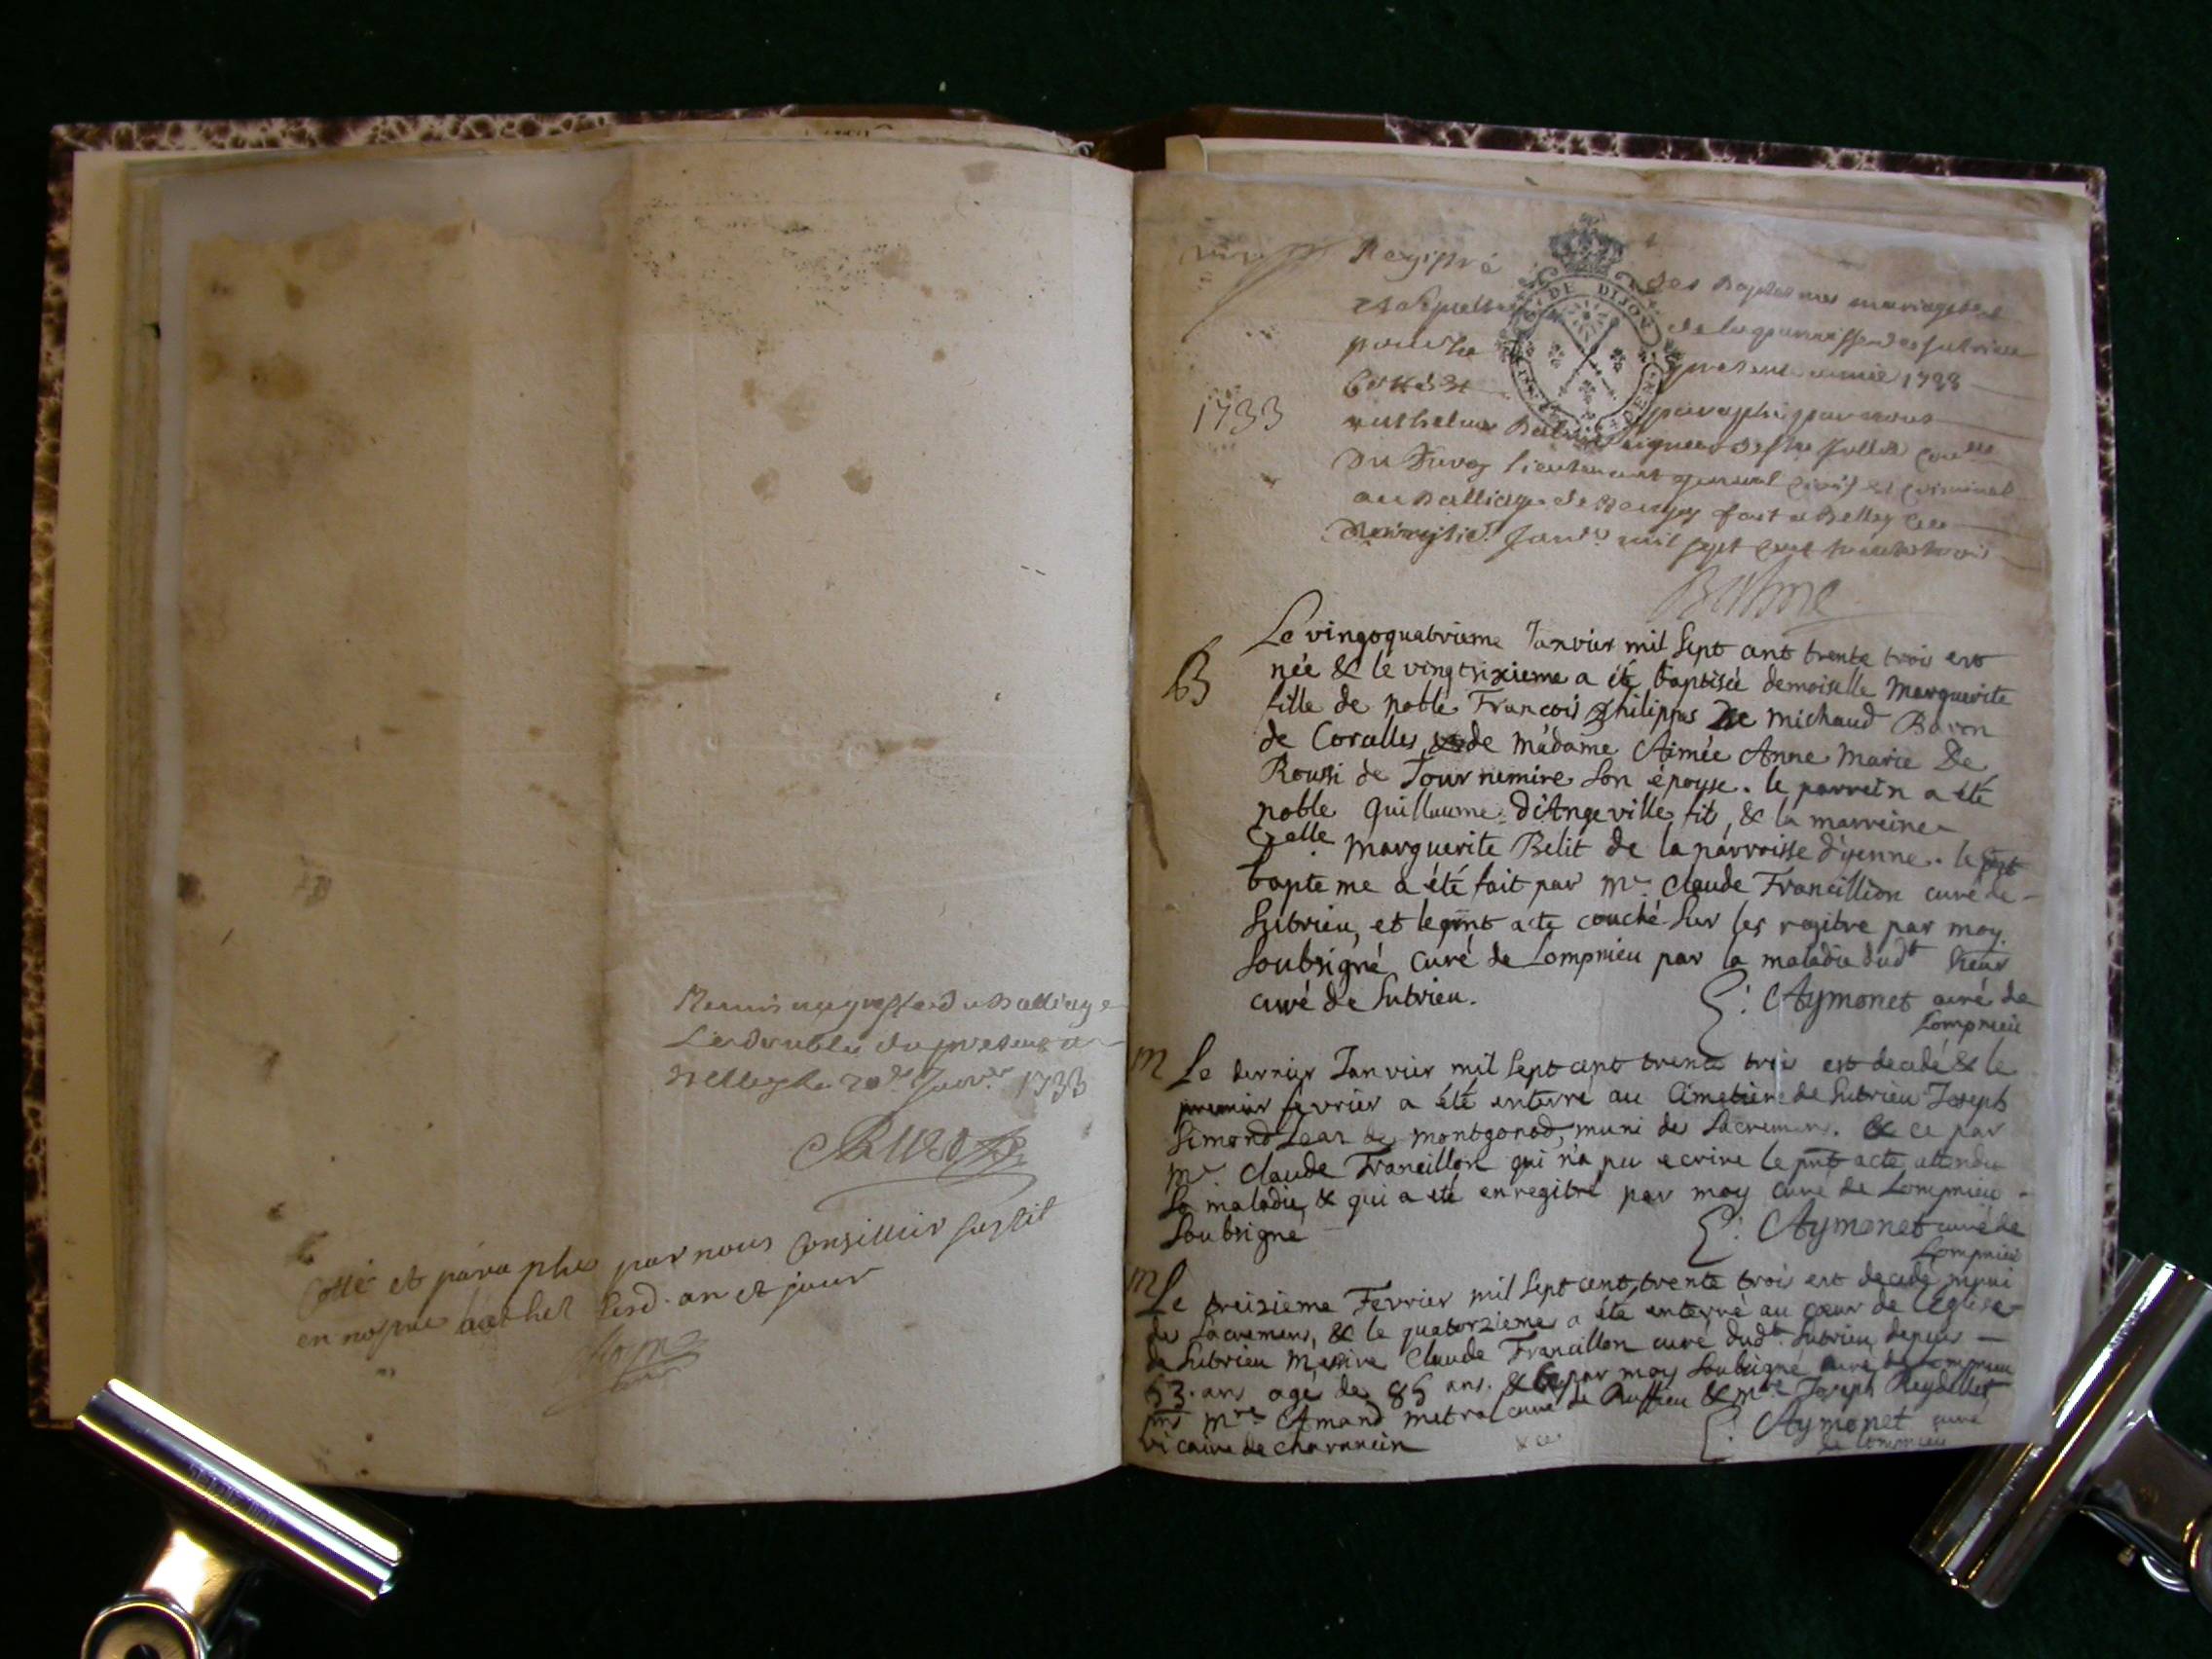 Remis au greffe du Balliage
Le double du present a
Belley le 20e Janvr 1733
Cotté et paraphé par nous Conseillier susdit
en nostre hothel lesd. an et jour
1733
Registre des Baptesmes mariages et
et sepultures de la parroisse de sutrieu
pour la presente année 1733
Cotté et paraphé par nous
Balme seigneur de Ste Jullie
lieutenant general Civil et Criminel
au Balliage de Bougey fait a Belley ce
Janvr mil sept cent trente trois
Balme
B
Le vingtquatrieme Janvier mil Sept cent trente trois est
née & le vingtsixieme a été baptisée demoiselle Marguerite
fille de noble Francois Philippes De michaud Baron
de Corcelles, & de madame Aimée Anne Marie De
Roussi de Tournemire Son épouse. le parrein a été
noble Guillaume d'Angeville fils, & la marreine
Delle Marguerite Belit de la parroisse d'yenne. le pnt
bapteme a été fait par Mr. Claude Francillion curé de
Sutrieu, et le pnt acte couché Sur les regitre par moy
Soubsigné curé de Lompnieu par la maladie dudt Sieur
curé de Sutrieu.
E: Aymonet curé de
Lompnieu
M Le dernier Janvier mil Sept cent trente trois est decedé & le
premier fevrier a été enterré au Cimetiere de Sutrieu Joseph
Simond de montgonod, muni de Sacremens. & ce par
Mr. Claude Francillon qui n'a pu ecrire le pnt acte attendu
Sa maladie, & qui a été enregitré par moy curé de Lompnieu
Soubsigne
E: Aymonet curé de
Lompnieu
M Le treisieme Fevrier mil Sept cent trente trois est decedé muni
de Sacremens, & le quatorzieme a été enterré au cœur de l'Eglise
de Sutrieu Messire Claude Francillon curé dudt Sutrieu depuis
53. ans agé de 85 ans. & ce par moy Soubsigné curé de Lompnieu
pnts Mre Amand metral curé de Ruffieu & Mre Joseph Reydellet
vicaire de chavannein
E: Aymonet curé
de Lompnieu